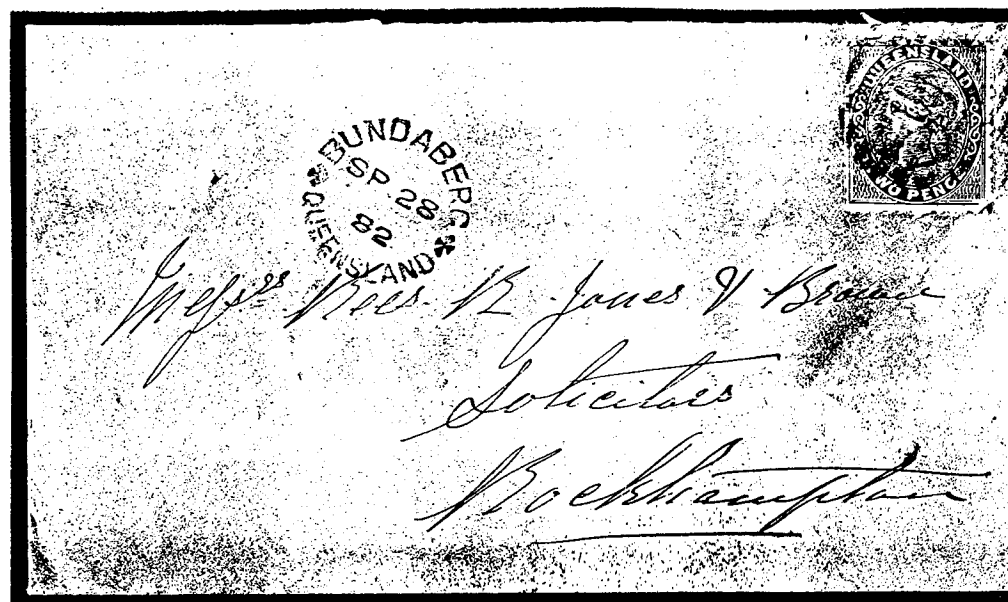 QUEENSLAND
TWO PENCE
BUNDABERG
SP 28
82
QUEENSLAND
Messrs Rees R Jones & Brown
Solicitors
Rockhampton